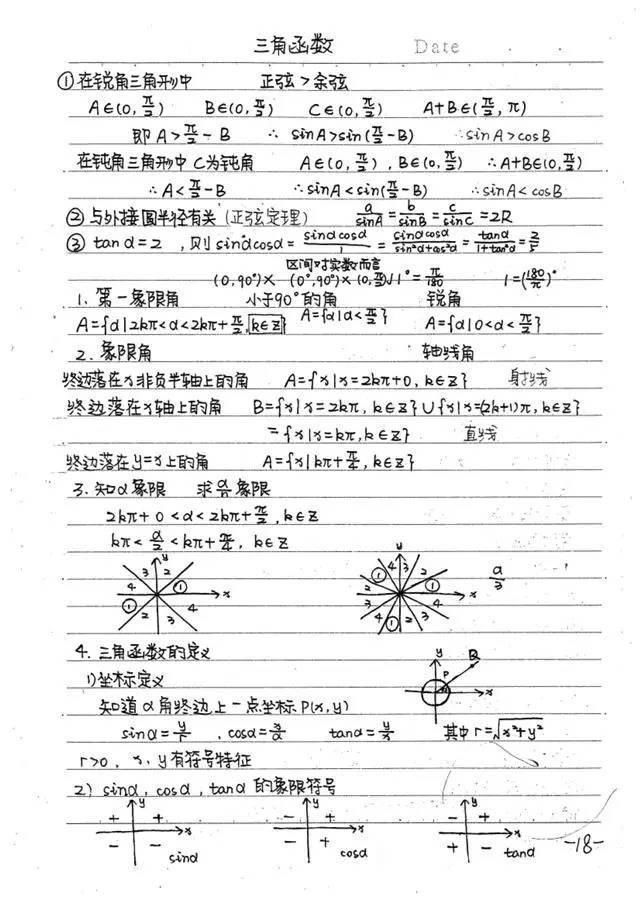 三角函数 Date
①在锐角三角形中 正弦>余弦
A∈(0,π/2) B∈(0,π/2) C∈(0,π/2) A+B∈(π/2,π)
即A>π/2-B ∴sinA>sin(π/2-B) ∴sinA>cosB
在钝角三角形中C为钝角 A∈(0,π/2),B∈(0,π/2) ∴A+B∈(0,π/2)
∴A<π/2-B ∴sinA<sin(π/2-B) ∴sinA<cosB
②与外接圆半径有关(正弦定理) a/sinA=b/sinB=c/sinC=2R
③tanα=2,则sinαcosα=sinαcosα/1=sinαcosα/(sin²α+cos²α)=tanα/(1+tan²α)=2/5
区间对实数而言
(0,90°)× (0°,90°)× (0,π/2)√ 1°=π/180 1=(180/π)°
1.第一象限角 小于90°的角 锐角
A={α|2kπ<α<2kπ+π/2,k∈Z} A={α|α<π/2} A={α|0<α<π/2}
2.象限角 轴线角
终边落在x非负半轴上的角 A={x|x=2kπ+0,k∈Z} 射线
终边落在x轴上的角 B={x|x=2kπ,k∈Z}∪{x|x=(2k+1)π,k∈Z}
={x|x=kπ,k∈Z} 直线
终边落在y=x上的角 A={x|kπ+π/4,k∈Z}
3.知α象限 求α/n象限
2kπ+0<α<2kπ+π/2,k∈Z
kπ<α/2<kπ+π/4,k∈Z
y x 3 2 4 ① ① 4 2 3
y x 4 3 ① 2 2 ① 3 4 4 ① 2 3 α/3
4.三角函数的定义
1)坐标定义 y P x
知道α角终边上一点坐标P(x,y)
sinα=y/r,cosα=x/r tanα=y/x 其中r=√(x²+y²)
r>0,x,y有符号特征
2)sinα,cosα,tanα的象限符号
+ + - - y x sinα
- + - + y x cosα
- + + - y x tanα
-18-